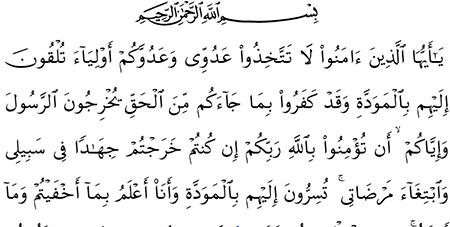 بِسْمِ ٱللَّهِ ٱلرَّحْمَٰنِ ٱلرَّحِيمِ
يَٰٓأَيُّهَا ٱلَّذِينَ ءَامَنُوا۟ لَا تَتَّخِذُوا۟ عَدُوِّى وَعَدُوَّكُمْ أَوْلِيَآءَ تُلْقُونَ
إِلَيْهِم بِٱلْمَوَدَّةِ وَقَدْ كَفَرُوا۟ بِمَا جَآءَكُم مِّنَ ٱلْحَقِّ يُخْرِجُونَ ٱلرَّسُولَ
وَإِيَّاكُمْ ۙ أَن تُؤْمِنُوا۟ بِٱللَّهِ رَبِّكُمْ إِن كُنتُمْ خَرَجْتُمْ جِهَٰدًا فِى سَبِيلِى
وَٱبْتِغَآءَ مَرْضَاتِى ۚ تُسِرُّونَ إِلَيْهِم بِٱلْمَوَدَّةِ وَأَنَا۠ أَعْلَمُ بِمَآ أَخْفَيْتُمْ وَمَآ